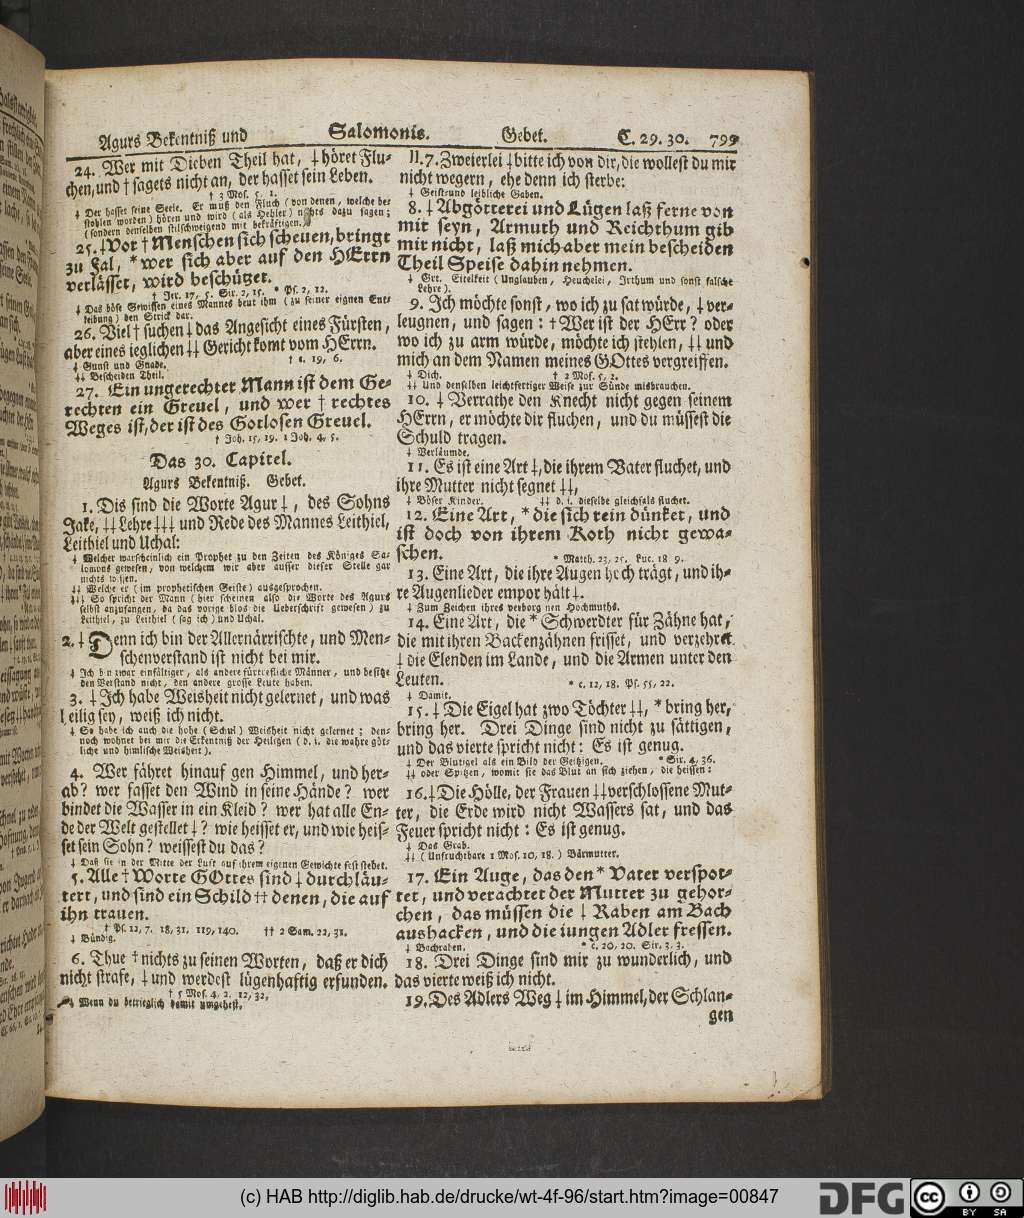 Agurs Bekentniß und Salomonis. Gebet. C. 29. 30. 799
24. Wer mit Dieben Theil hat, ⸸ höret Flu-
chen, und † sagets nicht an, der hasset sein Leben.
† 3 Mos. 5, 1.
⸸ Der hasset seine Seele. Er muß den Fluch (von denen, welche be-
stohlen worden) hören und wird (als Hehler) nichts dazu sagen;
(sondern denselben stilschweigend mit bekräftigen.)
25. ⸸ Vor † Menschen sich scheuen, bringt
zu Fal, * wer sich aber auf den HErrn
verlässet, wird beschützet.
† Jer. 17, 5. Sir. 2, 15. * Ps. 2, 12.
⸸ Das böse Gewissen eines Mannes beut ihm (zu seiner eignen Ent-
leibung) den Strick dar.
26. Viel † suchen ⸸ das Angesicht eines Fürsten,
aber eines ieglichen ⸸⸸ Gericht komt vom HErrn.
† c. 19, 6.
⸸ Gunst und Gnade.
⸸⸸ Bescheiden Theil.
27. Ein ungerechter Mann ist dem Ge-
rechten ein Greuel, und wer † rechtes
Weges ist, der ist des Gotlosen Greuel.
† Joh. 15, 19. 1 Joh. 4, 5.
Das 30. Capitel.
Agurs Bekentniß. Gebet.
1. Dis sind die Worte Agur ⸸, des Sohns
Jake, ⸸⸸ Lehre ⸸⸸⸸ und Rede des Mannes Leithiel,
Leithiel und Uchal:
⸸ Welcher warscheinlich ein Prophet zu den Zeiten des Königes Sa-
lomons gewesen, von welchem wir aber ausser dieser Stelle gar
nichts wissen.
⸸⸸ Welche er (im prophetischen Geiste) ausgesprochen.
⸸⸸⸸ So spricht der Mann (hier scheinen also die Worte des Agurs
selbst anzufangen, da das vorige blos die Ueberschrift gewesen) zu
Leithiel, zu Leithiel (sag ich) und Uchal.
2. ⸸ Denn ich bin der Allernärrischte, und Men-
schenverstand ist nicht bei mir.
⸸ Ich bin zwar einfältiger, als andere fürtrefliche Männer, und besitze
den Verstand nicht, den andere grosse Leute haben.
3. ⸸ Ich habe Weisheit nicht gelernet, und was
heilig sey, weiß ich nicht.
⸸ So habe ich auch die hohe (Schul) Weisheit nicht gelernet; den-
noch wohnet bei mir die Erkentniß der Heiligen (d. i. die wahre göt-
liche und himlische Weisheit).
4. Wer fähret hinauf gen Himmel, und her-
ab? wer fasset den Wind in seine Hände? wer
bindet die Wasser in ein Kleid? wer hat alle En-
de der Welt gestellet ⸸? wie heisset er, und wie heis-
set sein Sohn? weissest du das?
⸸ Daß sie in der Mitte der Luft auf ihrem eigenen Gewichte fest stehet.
5. Alle † Worte GOttes sind ⸸ durchläu-
tert, und sind ein Schild †† denen, die auf
ihn trauen.
† Ps. 12, 7. 18, 31. 119, 140. †† 2 Sam. 22, 31.
⸸ Bündig.
6. Thue † nichts zu seinen Worten, daß er dich
nicht strafe, ⸸ und werdest lügenhaftig erfunden.
† 5 Mos. 4, 2. 12, 32.
⸸ Wenn du betrieglich damit umgehest.
7. Zweierlei ⸸ bitte ich von dir, die wollest du mir
nicht wegern, ehe denn ich sterbe:
⸸ Geist- und leibliche Gaben.
8. ⸸ Abgötterei und Lügen laß ferne von
mir seyn, Armuth und Reichthum gib
mir nicht, laß mich aber mein bescheiden
Theil Speise dahin nehmen.
⸸ Grt. Eitelkeit (Unglauben, Heuchelei, Irthum und sonst falsche
Lehre).
9. Ich möchte sonst, wo ich zu sat würde, ⸸ ver-
leugnen, und sagen: † Wer ist der HErr? oder
wo ich zu arm würde, möchte ich stehlen, ⸸⸸ und
mich an dem Namen meines GOttes vergreiffen.
⸸ Dich. † 2 Mos. 5, 2.
⸸⸸ Und denselben leichtfertiger Weise zur Sünde misbrauchen.
10. ⸸ Verrathe den Knecht nicht gegen seinem
HErrn, er möchte dir fluchen, und du müssest die
Schuld tragen.
⸸ Verläumde.
11. Es ist eine Art ⸸, die ihrem Vater fluchet, und
ihre Mutter nicht segnet ⸸⸸,
⸸ Böser Kinder. ⸸⸸ d. i. dieselbe gleichfals fluchet.
12. Eine Art, * die sich rein dünket, und
ist doch von ihrem Koth nicht gewa-
schen.
* Matth. 23, 25. Luc. 18 9.
13. Eine Art, die ihre Augen hoch trägt, und ih-
re Augenlieder empor hält ⸸.
⸸ Zum Zeichen ihres verborgnen Hochmuths.
14. Eine Art, die * Schwerdter für Zähne hat,
die mit ihren Backenzähnen frisset, und verzehret
⸸ die Elenden im Lande, und die Armen unter den
Leuten.
* c. 12, 18. Ps. 55, 22.
⸸ Damit.
15. ⸸ Die Eigel hat zwo Töchter ⸸⸸, * bring her,
bring her. Drei Dinge sind nicht zu sättigen,
und das vierte spricht nicht: Es ist genug.
⸸ Der Blutigel als ein Bild der Geitzigen. * Sir. 4, 36.
⸸⸸ oder Spitzen, womit sie das Blut an sich ziehen, die heissen:
16. ⸸ Die Hölle, der Frauen ⸸⸸ verschlossene Mut-
ter, die Erde wird nicht Wassers sat, und das
Feuer spricht nicht: Es ist genug.
⸸ Das Grab.
⸸⸸ (Unfruchtbare 1 Mos. 10, 18.) Bärmutter.
17. Ein Auge, das den * Vater verspot-
tet, und verachtet der Mutter zu gehor-
chen, das müssen die ⸸ Raben am Bach
aushacken, und die iungen Adler fressen.
⸸ Bachraben. * c. 20, 20. Sir. 3. 3.
18. Drei Dinge sind mir zu wunderlich, und
das vierte weiß ich nicht.
19. Des Adlers Weg ⸸ im Himmel, der Schlan-
gen
(c) HAB http://diglib.hab.de/drucke/wt-4f-96/start.htm?image=00847
DFG
cc BY SA